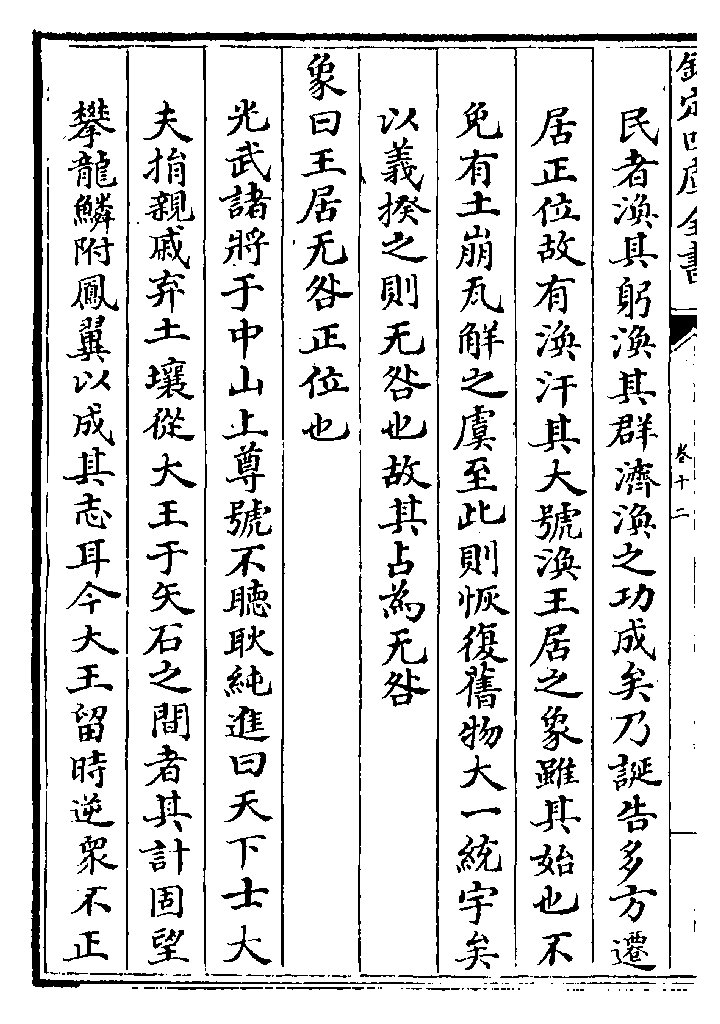 欽定四庫全書
卷十二
民者渙其躬渙其群濟渙之功成矣乃誕告多方遷
居正位故有渙汗其大號渙王居之象雖其始也不
免有土崩瓦解之虞至此則恢復舊物大一統宇矣
以義揆之則无咎也故其占為无咎
象曰王居无咎正位也
光武諸將于中山上尊號不聽耿純進曰天下士大
夫捐親戚弃土壤從大王于矢石之間者其計固望
攀龍鱗附鳳翼以成其志耳今大王留時逆衆不正